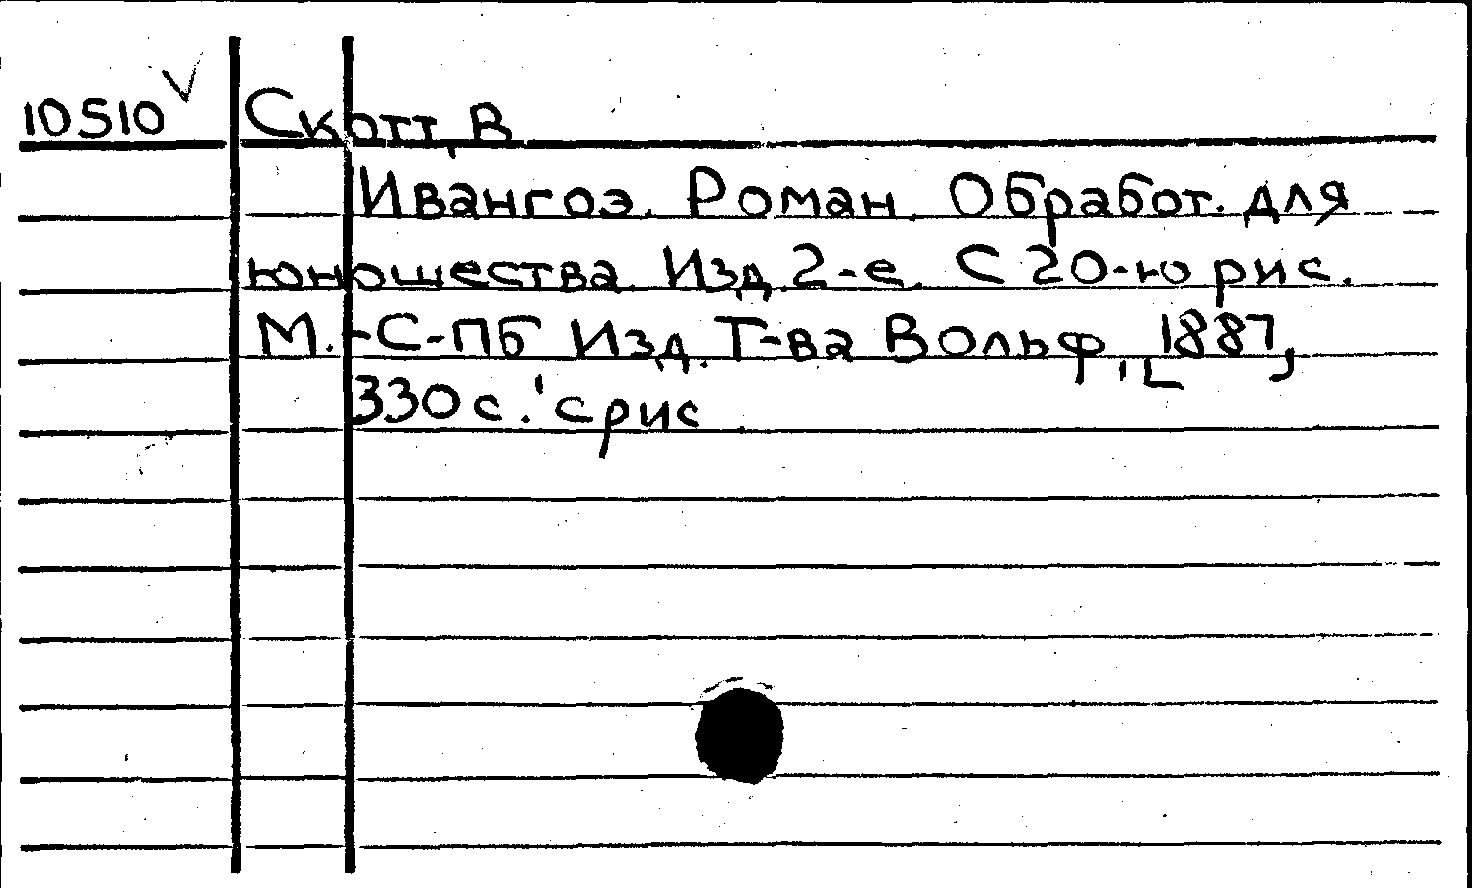 10510 Скотт, В
Ивангоэ. Роман. Обработ. для
юношества. Изд. 2-е. С 20-ю рис.
М.-С-Пб Изд. Т-ва Вольф, 1887,
330 с. с рис